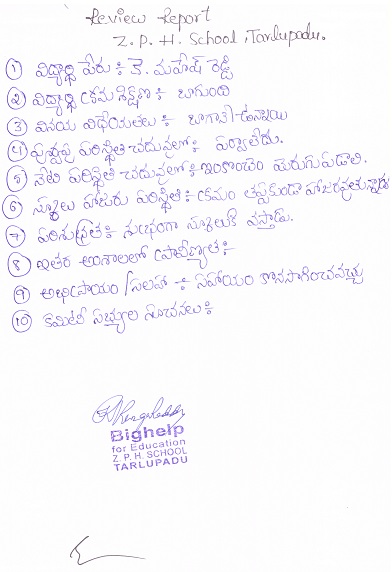 Review Report
Z. P. H. School, Tarlupadu.
① విద్యార్థి పేరు ః కె. మహేష్ రెడ్డి
② విద్యార్థి క్రమశిక్షణ ః బాగుంది
③ వినయ విధేయతలు ః బాగానే ఉన్నాయి
④ పూర్వపు పరిస్థితి చదువులో ః పర్వాలేదు.
⑤ నేటి పరిస్థితి చదువులో ః ఇంకొంచెం మెరుగుపడాలి.
⑥ స్కూలు హాజరు పరిస్థితి ః క్రమం తప్పకుండా హాజరవుతున్నాడు
⑦ పరిశుభ్రత ః శుభ్రంగా స్కూలుకి వస్తాడు.
⑧ ఇతర అంశాలలో ప్రావీణ్యత ః
⑨ అభిప్రాయం / సలహా ః సహాయం కొనసాగించవచ్చు
⑩ కమిటీ సభ్యుల సూచనలు ః
Bighelp
for Education
Z. P. H. SCHOOL
TARLUPADU